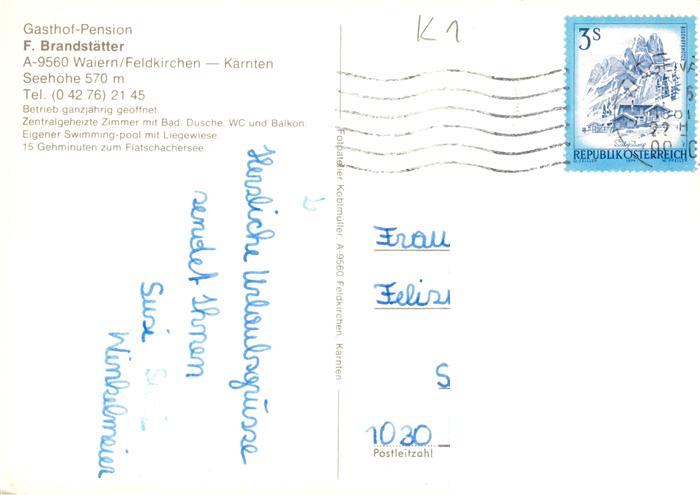 Gasthof-Pension
F. Brandstätter
A-9560 Waiern/Feldkirchen — Kärnten
Seehöhe 570 m
Tel. (0 42 76) 21 45
Betrieb ganzjährig geöffnet.
Zentralgeheizte Zimmer mit Bad, Dusche, WC und Balkon.
Eigener Swimming-pool mit Liegewiese.
15 Gehminuten zum Flatschachersee.
Herzliche Urlaubsgrüsse
sendet Ihnen
Susi
Winkelmeier
Fotoatelier Koblmüller, A-9560 Feldkirchen, Kärnten
K1
3 S
REPUBLIK ÖSTERREICH
Frau
1030
Postleitzahl